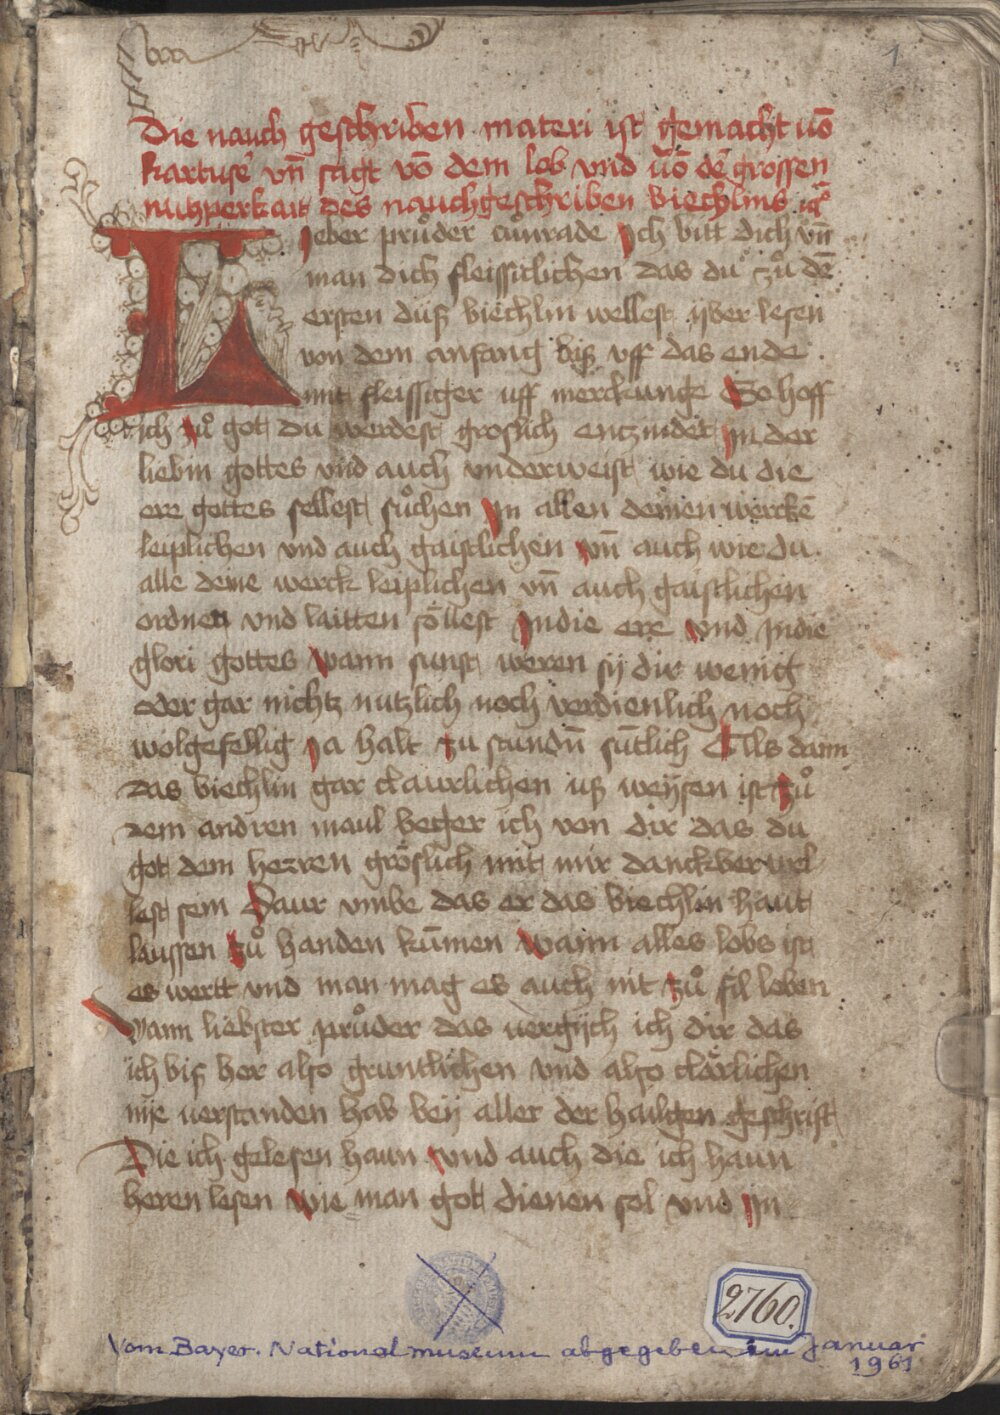 1
Die nauch geschriben materi ist gemacht vō
kartuser̄ vn̄ sagt vō dem lob vnd vō dē grossen
nutzperkait des nauchgeschriben biechlins
Lieber průder cůnrade Ich bitt dich vn̄
man dich fleissitlichen das du zů dē
ersten düß biechlin wellest yber lesen
von dem anfang biß vff das ende
mit fleissiger uff merckunge So hoff
ich zů got du werdest groslich entzindet in der
liebin gottes vnd auch vnderweist wie du die
ere gottes sellest sůchen In allen deinen werckē
leiplichen vnd auch gaistlichen vn̄ auch wie du
alle deine werck leiplichen vn̄ auch gaistlichen
ordnen vnd laitten söllest In die ere vnd In die
glori gottes wann sunst weren sy dir wenig
oder gar nichtz nutzlich noch verdienlich noch
wolgefellig Ja halt zu stundn̄ sūtlich Als dann
das biechlin gar claurlichen uß weysen ist zů
dem andren maul beger ich von dir das du
got dem herren gröslich mit mir danckber wel
lest sein Daur vmbe das er das biechlin haut
laussen zů handen kūmen wann alles lobs ist
es wertt vnd man mag es auch nit zů fil loben
Wann liebster průder das vergych ich dir das
ich biß her also gruntlichen vnd also clärlichen
nye verstanden hab bey aller der hailgen geschrift
Die ich gelesen haun vnd auch die ich haun
heren lesen wie man got dienen sol vnd In
2760.
Vom Bayer. Nationalmuseum abgegeben im Januar
1961